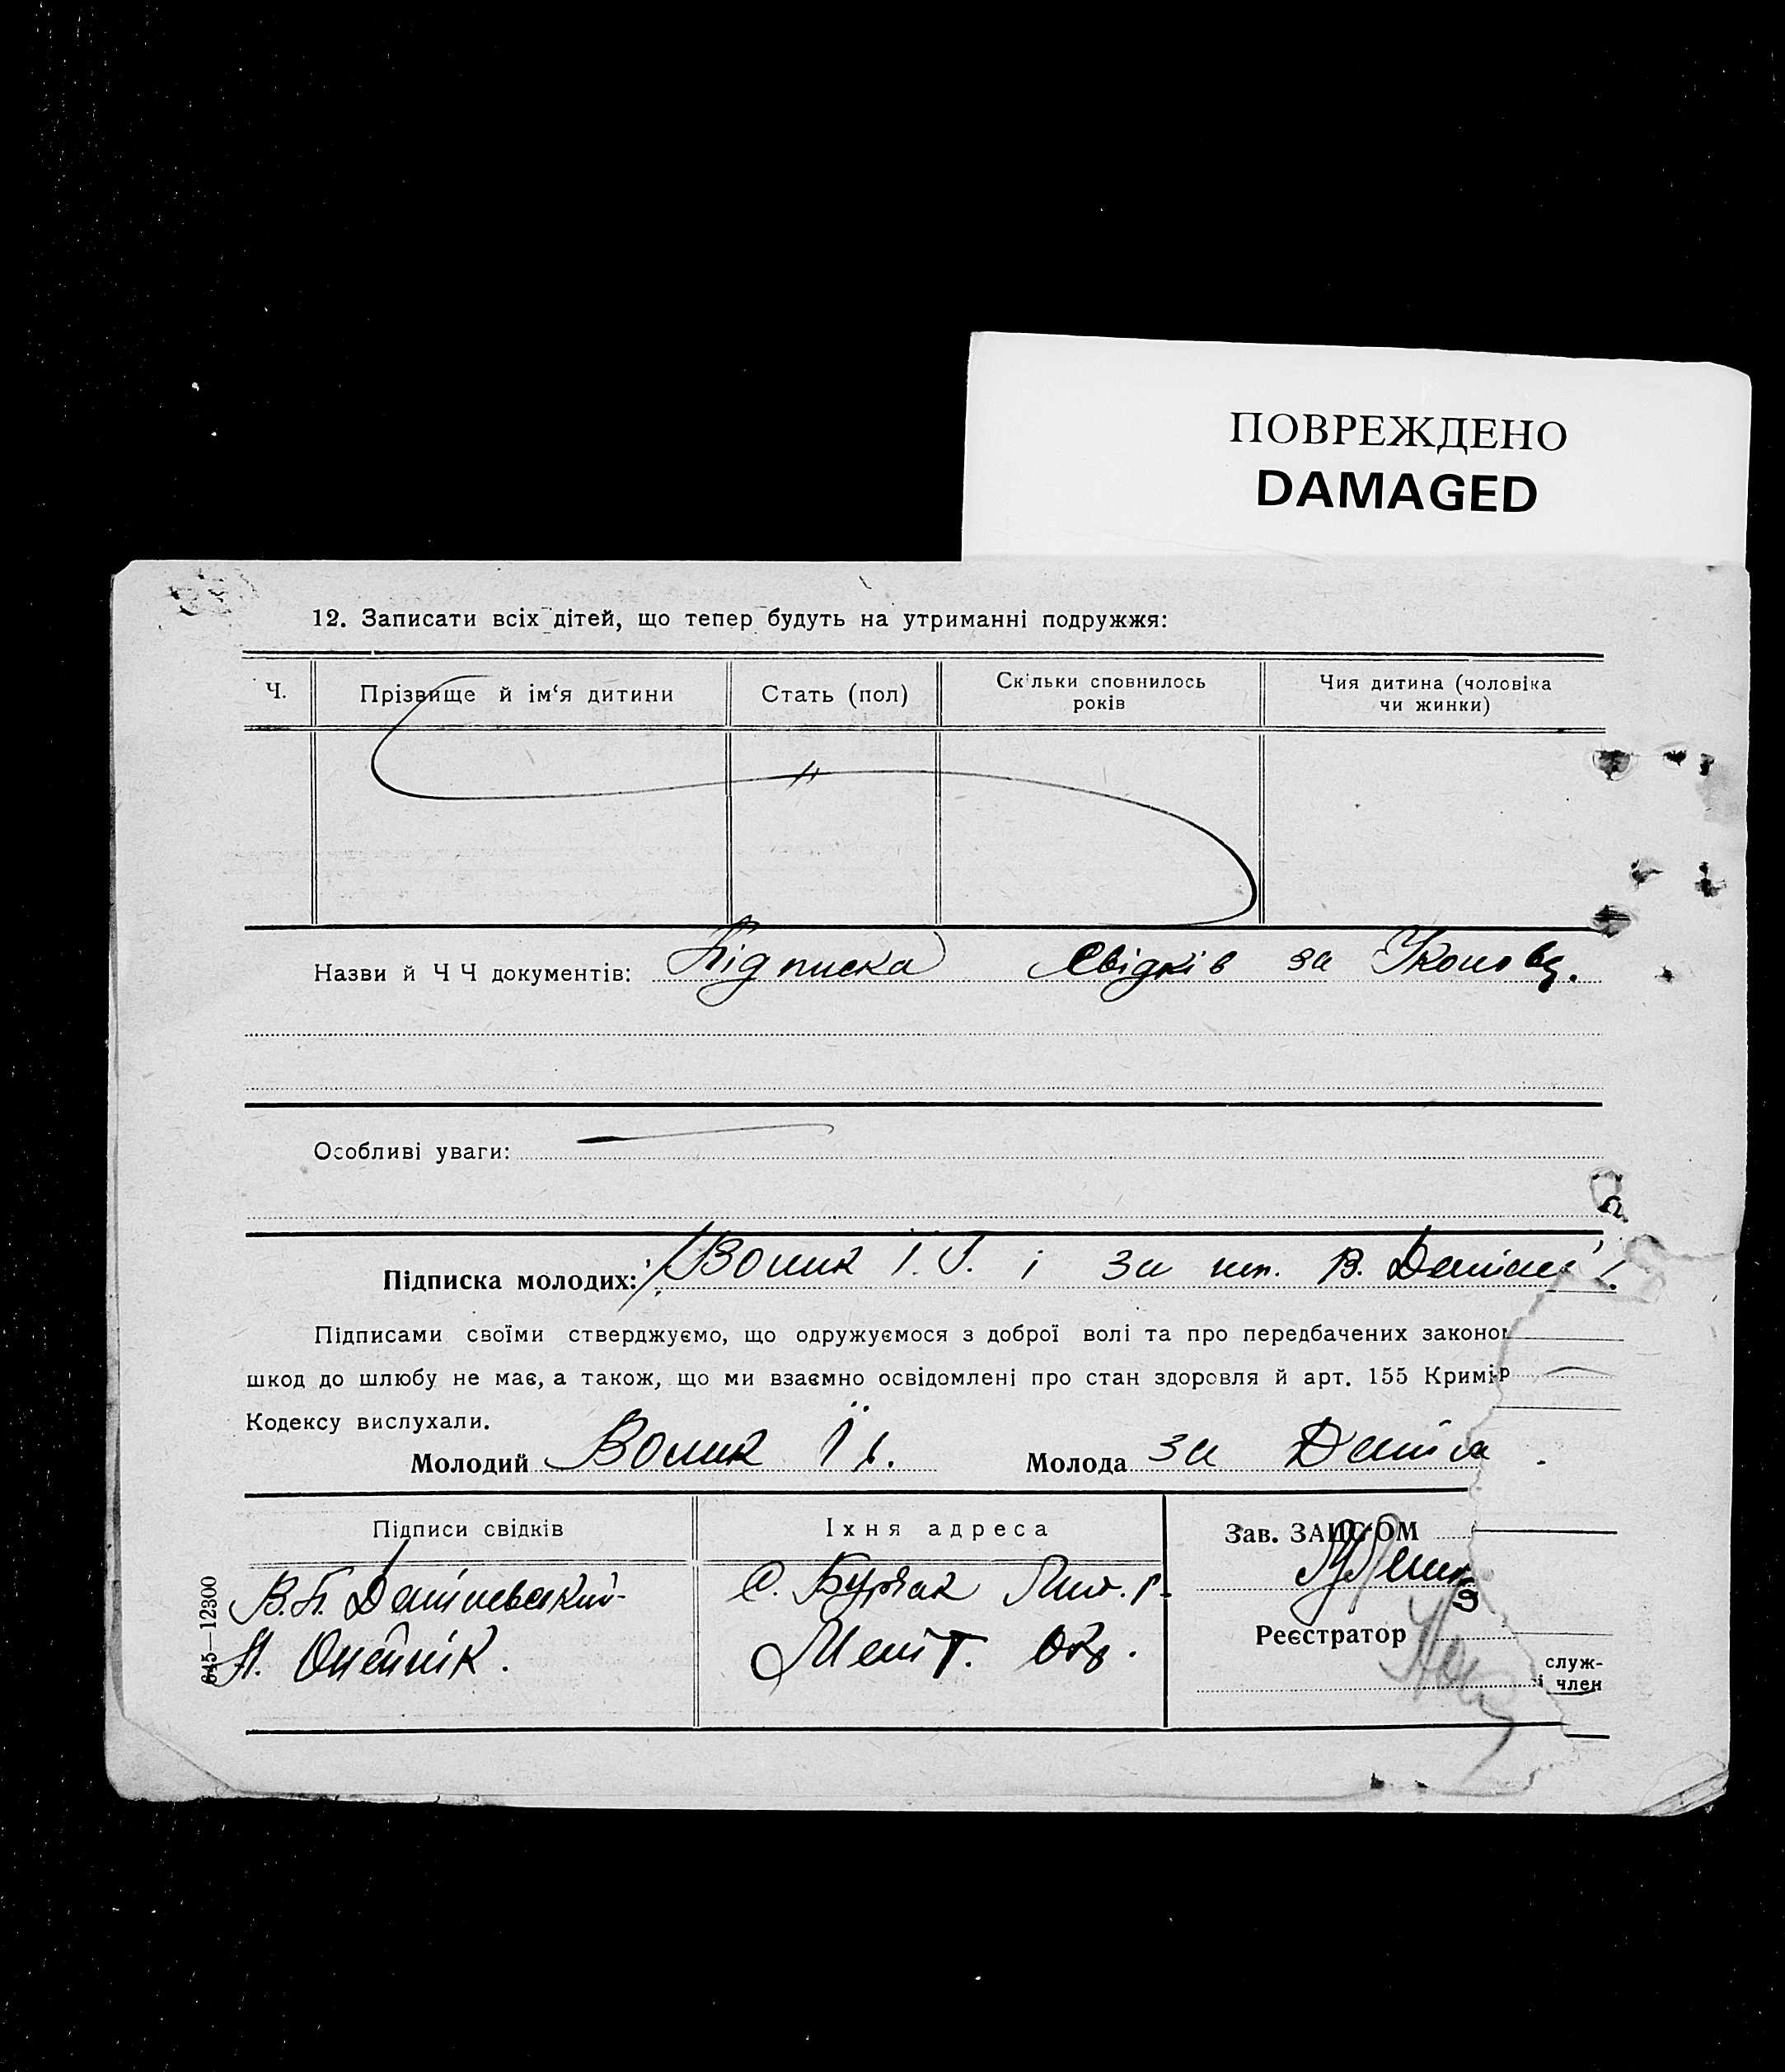 ПОВРЕЖДЕНО
DAMAGED
12. Записати всіх дітей, що тепер будуть на утриманні подружжя:
Ч.
Прізвище й ім'я дитини
Стать (пол)
Скільки сповнилось
років
Чия дитина (чоловіка
чи жинки)
Назви й Ч Ч документів: Підписка свідків за
Особливі уваги:
Підписка молодих: Волик І. і за В.
Підписами своїми стверджуємо, що одружуємося з доброї волі та про передбачених законо
шкод до шлюбу не має, а також, що ми взаємно освідомлені про стан здоровля й арт. 155 Кримі
Кодексу вислухали.
Молодий Волик Молода за
Підписи свідків
Їхня адреса
Зав. ЗАПСОМ
В.П.
С. Буряк
Реєстратор
Мелiт. Окр.
служ-
і член
645—12300